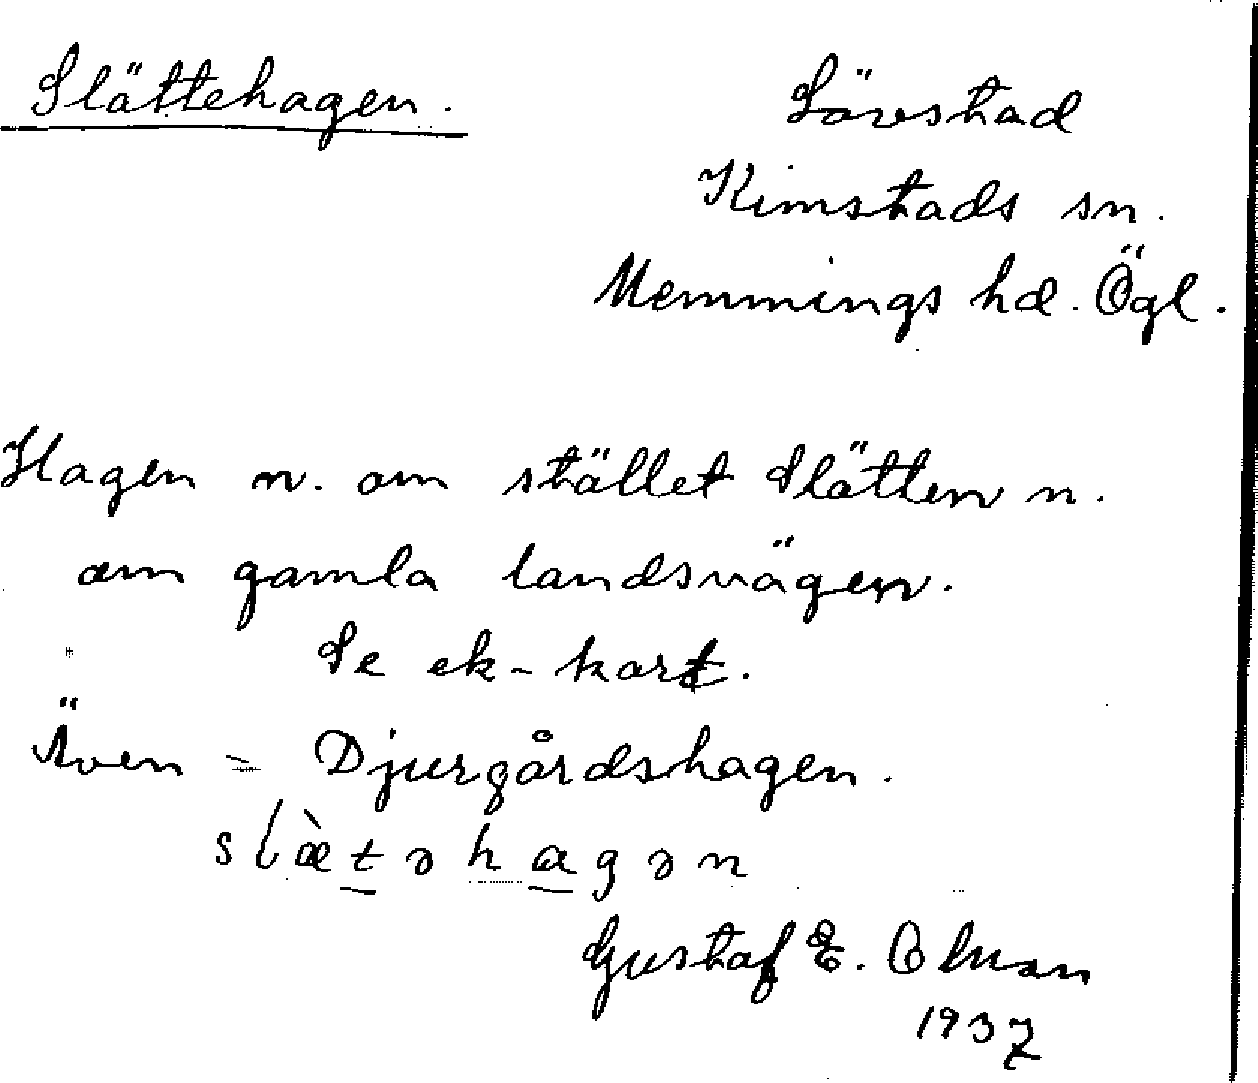 Slättehagen.
Lövstad
Kimstads sn.
Memmings hd. Ögl.
Hagen n. om stället Slätten n.
om gamla landsvägen.
Se ek-kart.
Även = Djurgårdshagen.
slæ̀təhagən
Gustaf E. Olman
1937